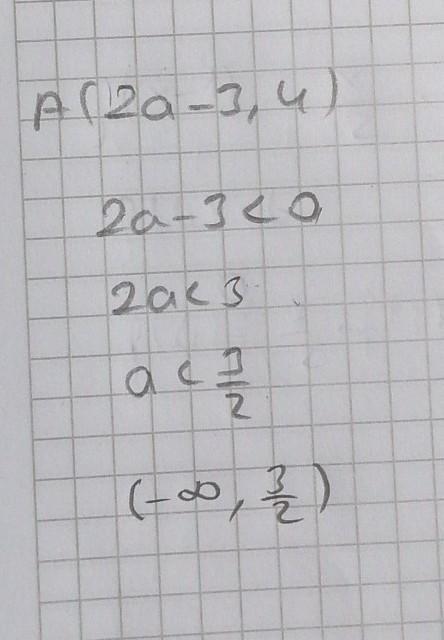 A(2a-3,4)
2a-3<0
2a<3
a<3/2
(-∞,3/2)